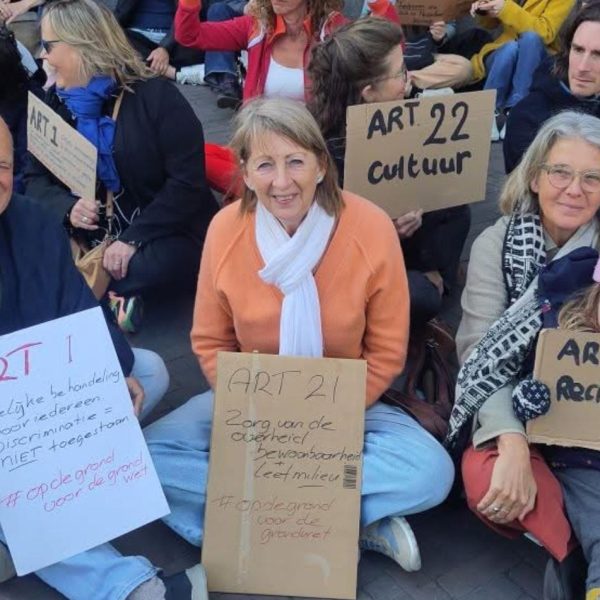 ART 1
ART 22
cultuur
ART 1
elijke behandeling
voor iedereen
Discriminatie =
NIET toegestaan
#opdegrond
voor de grond
wet
ART 21
Zorg van de
overheid
bewoonbaarheid
+
Leefmilieu
#opdegrond
voor de
grondwet
AR
Rec